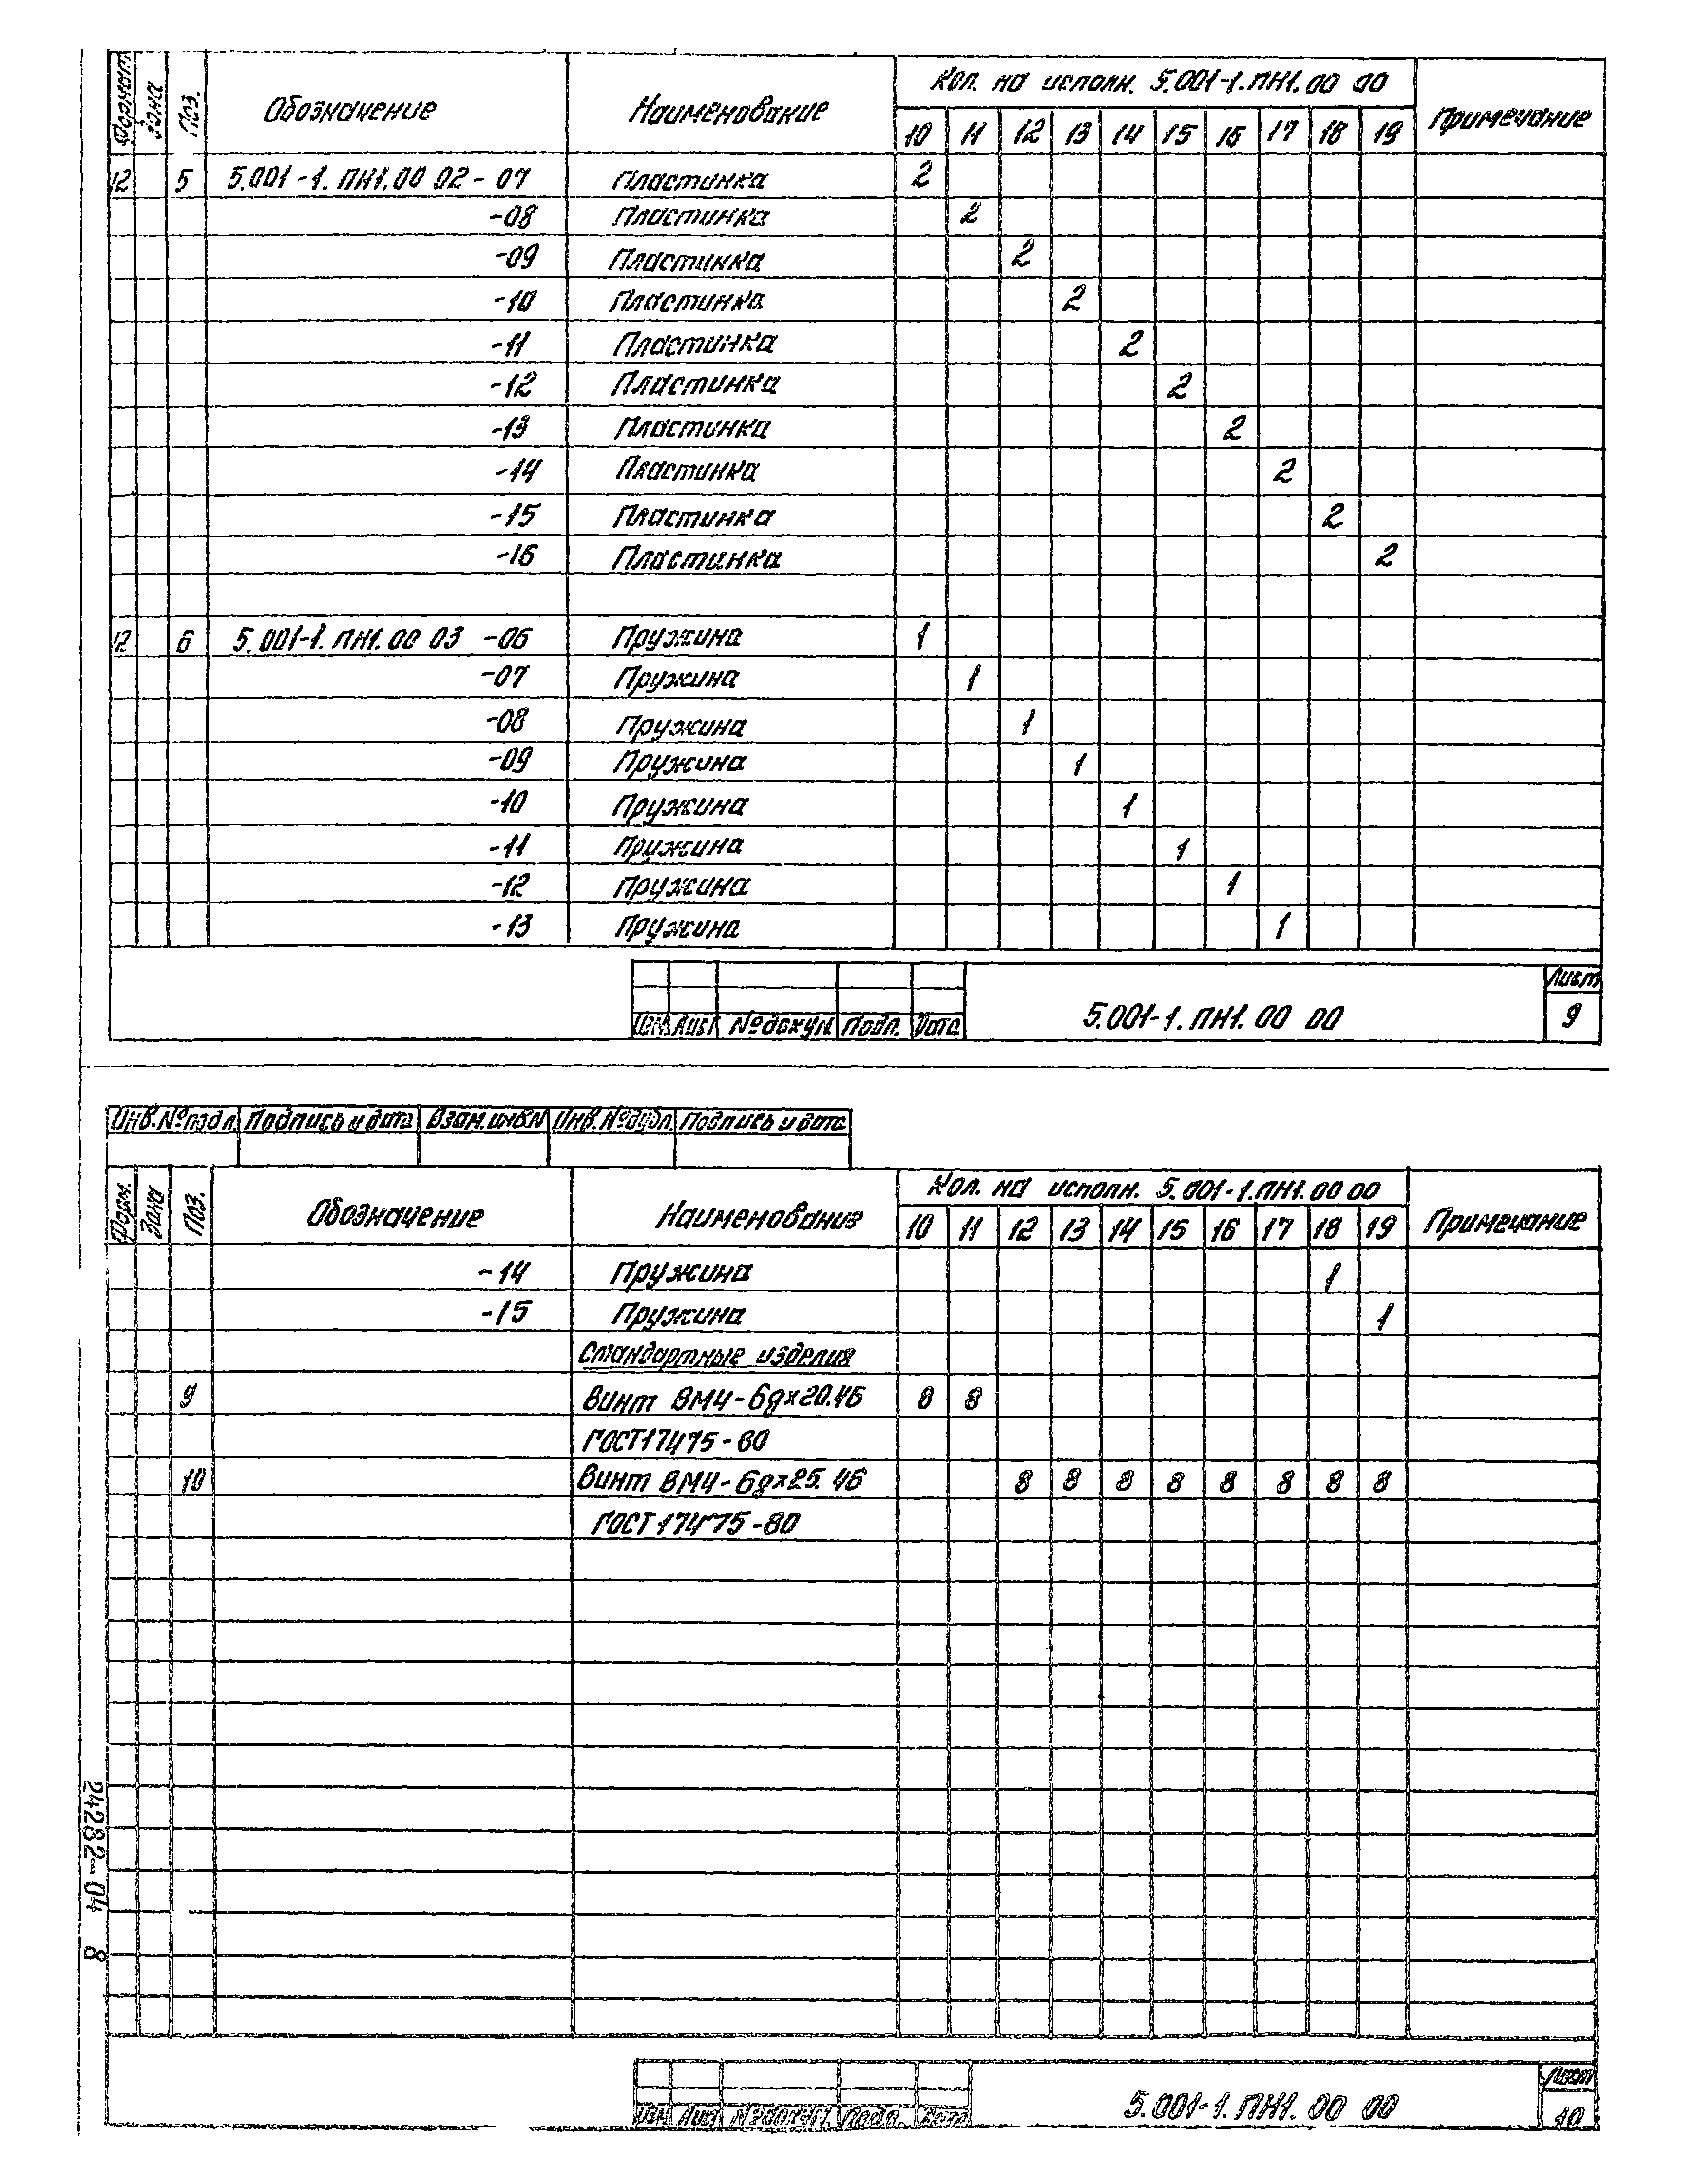 Формат Зона Поз. Обозначение Наименование Кол. на исполн. 5.001-1.ПН1.00 00 Примечание
10 11 12 13 14 15 16 17 18 19
12 5 5.001-1.ПН1.00 02-07 Пластинка 2
-08 Пластинка 2
-09 Пластинка 2
-10 Пластинка 2
-11 Пластинка 2
-12 Пластинка 2
-13 Пластинка 2
-14 Пластинка 2
-15 Пластинка 2
-16 Пластинка 2
12 6 5.001-1.ПН1.00 03 -06 Пружина 1
-07 Пружина 1
-08 Пружина 1
-09 Пружина 1
-10 Пружина 1
-11 Пружина 1
-12 Пружина 1
-13 Пружина 1
Лист
Изм Лист № докум Подп. Дата 5.001-1.ПН1.00 00 9
Инв.№ подл. Подпись и дата Взам.инв.N Инв.№ дубл. Подпись и дата
Форм. Зона Поз. Обозначение Наименование Кол. на исполн. 5.001-1.ПН1.00 00 Примечание
10 11 12 13 14 15 16 17 18 19
-14 Пружина 1
-15 Пружина 1
Стандартные изделия
9 Винт ВМ4-6gx20.46 8 8
ГОСТ17475-80
10 Винт ВМ4-6gx25.46 8 8 8 8 8 8 8 8
ГОСТ17475-80
24282-04 8
Лист
Изм Лист № докум. Подп. Дата 5.001-1.ПН1.00 00 10